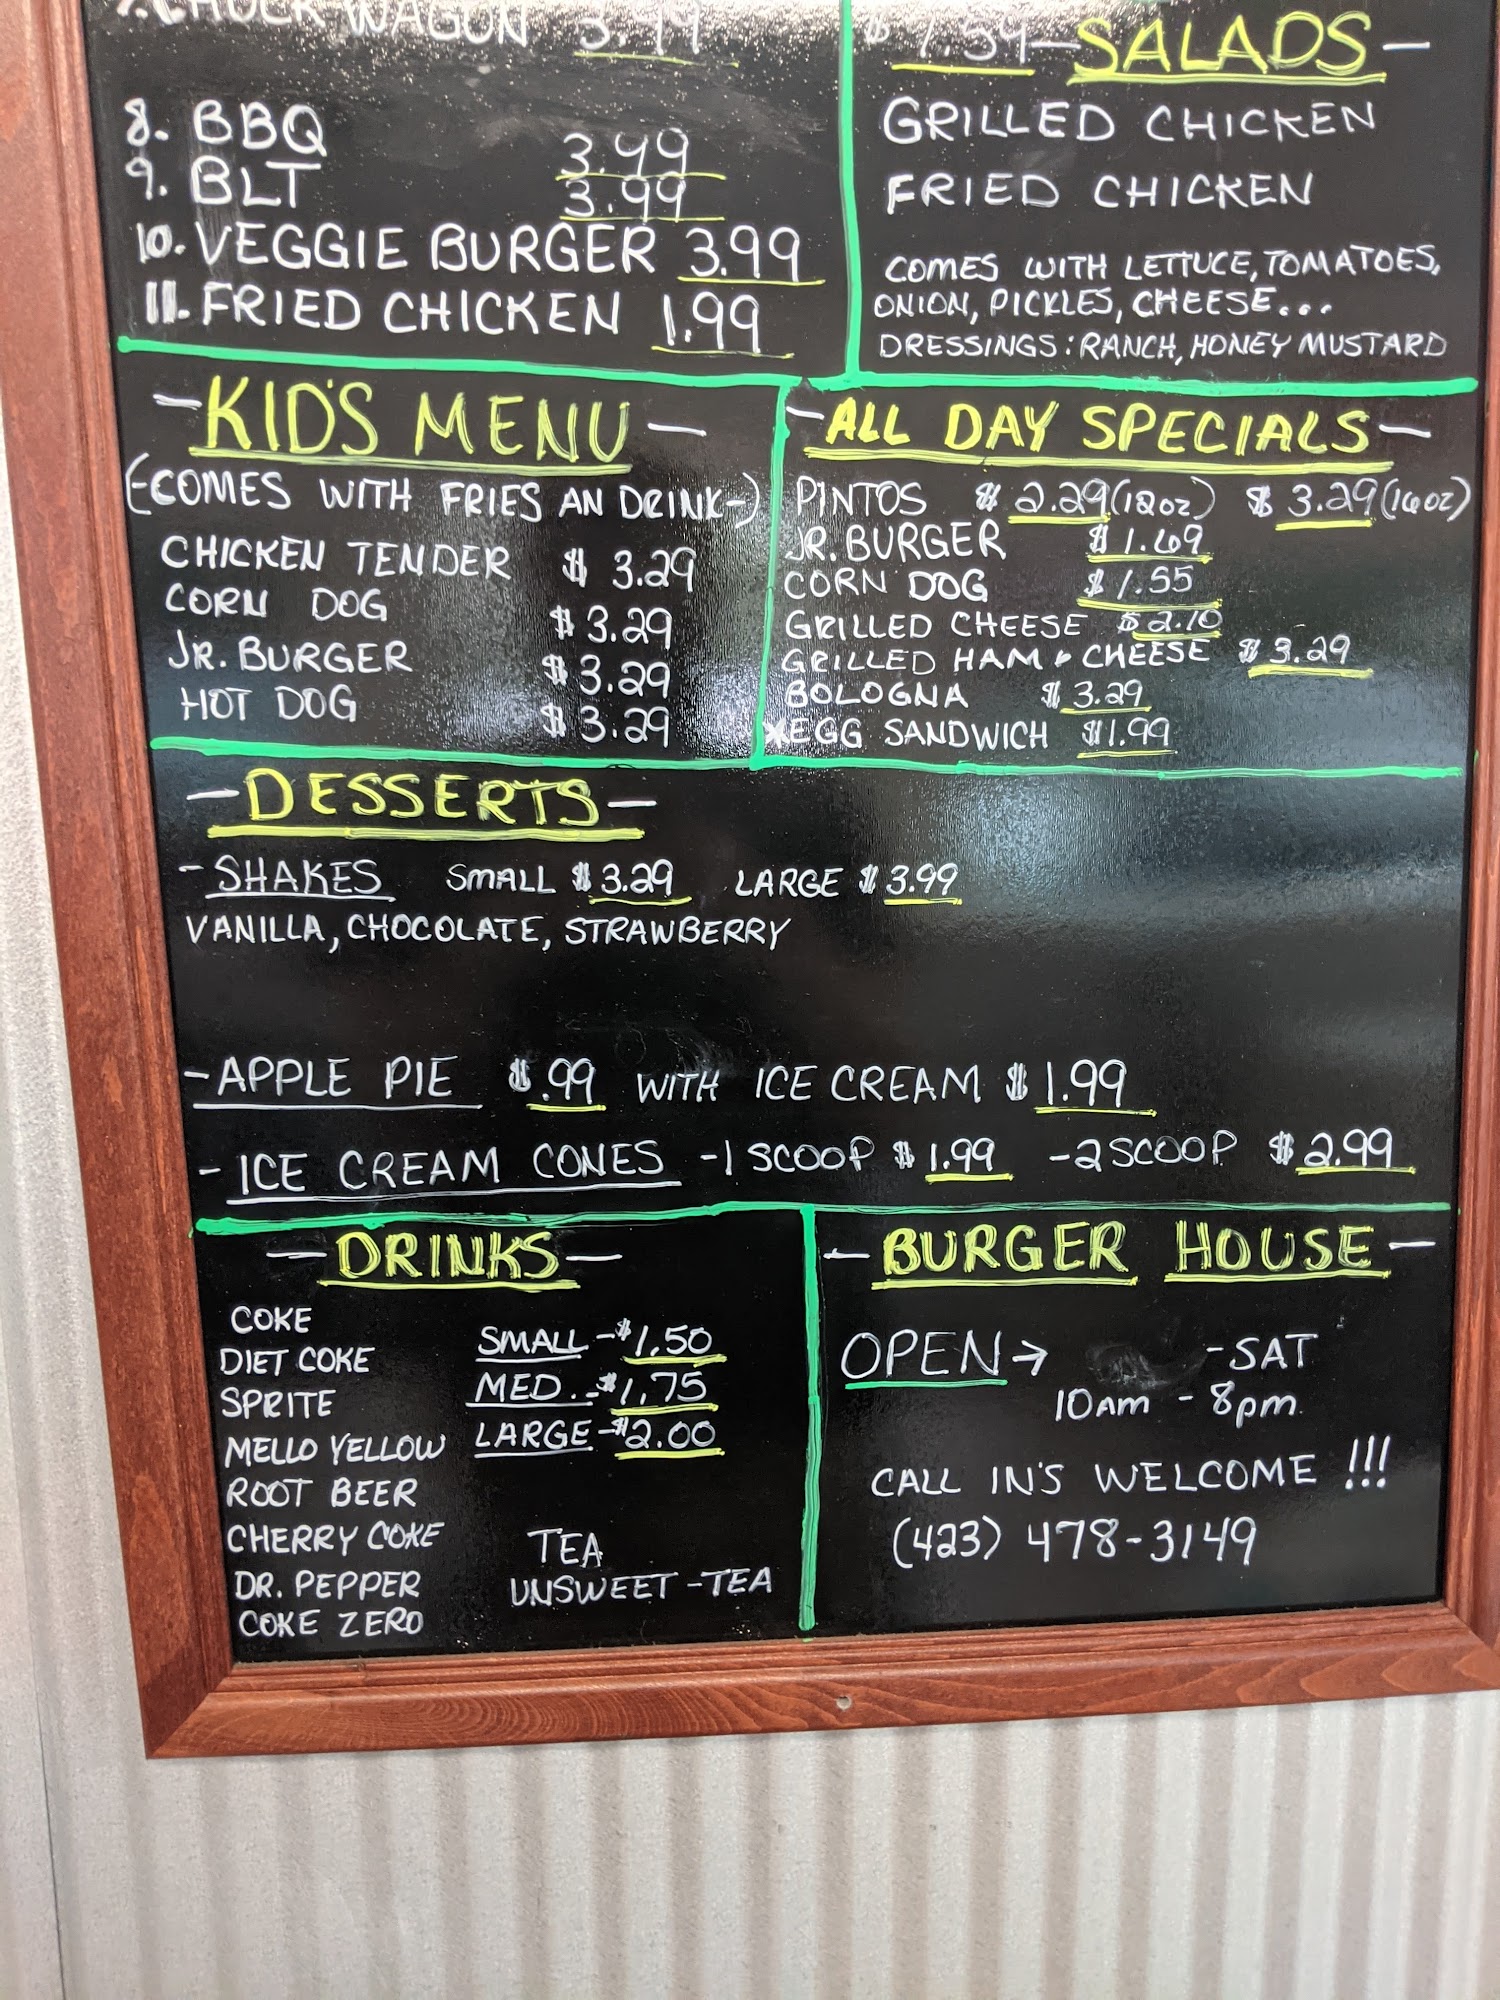 7. CHUCK WAGON 3.99
8. BBQ 3.99
9. BLT 3.99
10. VEGGIE BURGER 3.99
11. FRIED CHICKEN 1.99
$ 1.59
-SALADS-
GRILLED CHICKEN
FRIED CHICKEN
COMES WITH LETTUCE, TOMATOES,
ONION, PICKLES, CHEESE...
DRESSINGS: RANCH, HONEY MUSTARD
-KID'S MENU-
(-COMES WITH FRIES AN DRINK-)
CHICKEN TENDER $ 3.29
CORN DOG $ 3.29
JR. BURGER $ 3.29
HOT DOG $ 3.29
-ALL DAY SPECIALS-
PINTOS $ 2.29 (12oz) $ 3.29 (16oz)
JR. BURGER $ 1.69
CORN DOG $ 1.55
GRILLED CHEESE $ 2.10
GRILLED HAM & CHEESE $ 3.29
BOLOGNA $ 3.29
*EGG SANDWICH $1.99
-DESSERTS-
-SHAKES SMALL $ 3.29 LARGE $ 3.99
VANILLA, CHOCOLATE, STRAWBERRY
-APPLE PIE $ .99 WITH ICE CREAM $ 1.99
-ICE CREAM CONES -1 SCOOP $ 1.99 -2 SCOOP $ 2.99
-DRINKS-
COKE
DIET COKE
SPRITE
MELLO YELLOW
ROOT BEER
CHERRY COKE
DR. PEPPER
COKE ZERO
SMALL -$1.50
MED. -$1.75
LARGE -$2.00
TEA
UNSWEET -TEA
-BURGER HOUSE-
OPEN→ -SAT
10am - 8pm.
CALL IN'S WELCOME !!!
(423) 478-3149